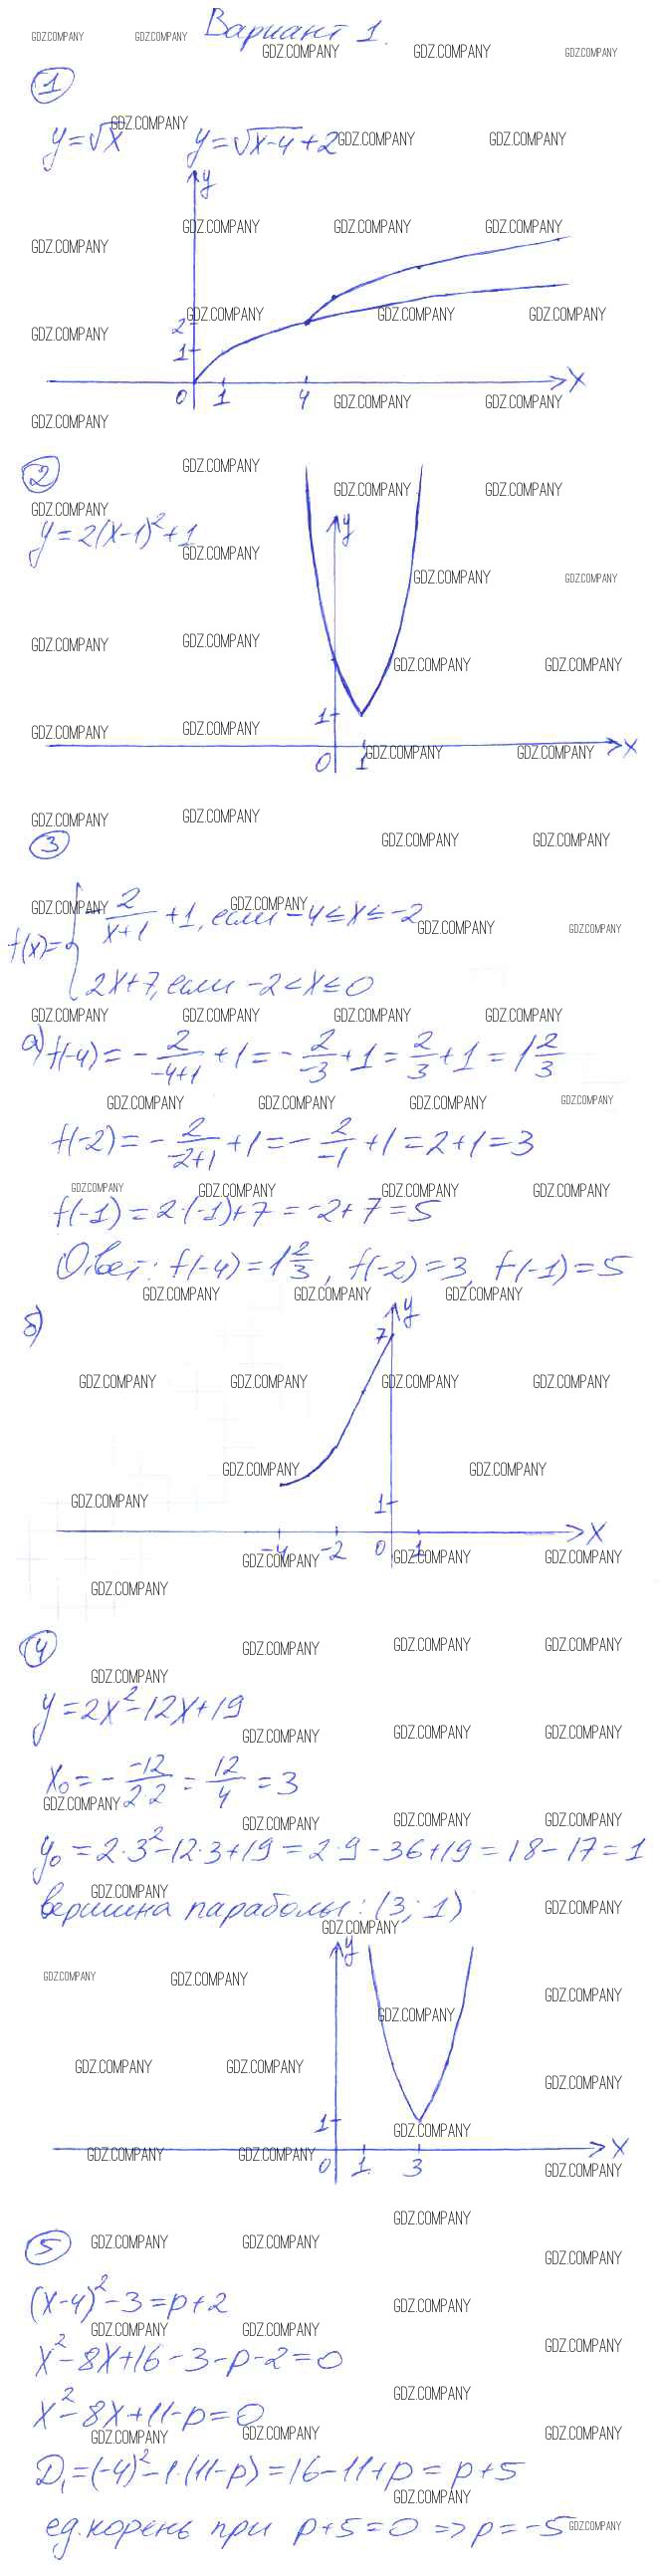 Вариант 1.
1
y=√x y=√x-4+2
y
2
1
0 1 4 x
2
y=2(x-1)²+1
y
1
0 1 x
3
f(x)= { -2/(x+1) +1, если -4≤x≤-2
2x+7, если -2<x≤0
а) f(-4)= -2/(-4+1) +1= -2/(-3) +1= 2/3 +1=1 2/3
f(-2)= -2/(-2+1) +1= -2/(-1) +1=2+1=3
f(-1)=2·(-1)+7=-2+7=5
Ответ: f(-4)=1 2/3, f(-2)=3, f(-1)=5
б)
y
7
1
-4 -2 0 1 x
4
y=2x²-12x+19
x₀= - -12/2·2 = 12/4 =3
y₀=2·3²-12·3+19=2·9-36+19=18-17=1
вершина параболы: (3; 1)
y
1
0 1 3 x
5
(x-4)²-3=p+2
x²-8x+16-3-p-2=0
x²-8x+11-p=0
D₁=(-4)²-1·(11-p)=16-11+p=p+5
ед. корень при p+5=0 => p=-5
GDZ.COMPANY